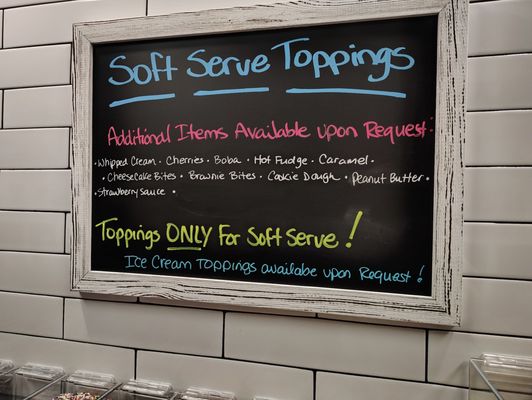 Soft Serve Toppings
Additional Items Available upon Request:
· Whipped Cream · Cherries · Boba · Hot Fudge · Caramel ·
· Cheesecake Bites · Brownie Bites · Cookie Dough · Peanut Butter ·
· Strawberry Sauce ·
Toppings ONLY For Soft Serve!
Ice Cream Toppings availabe upon Request!